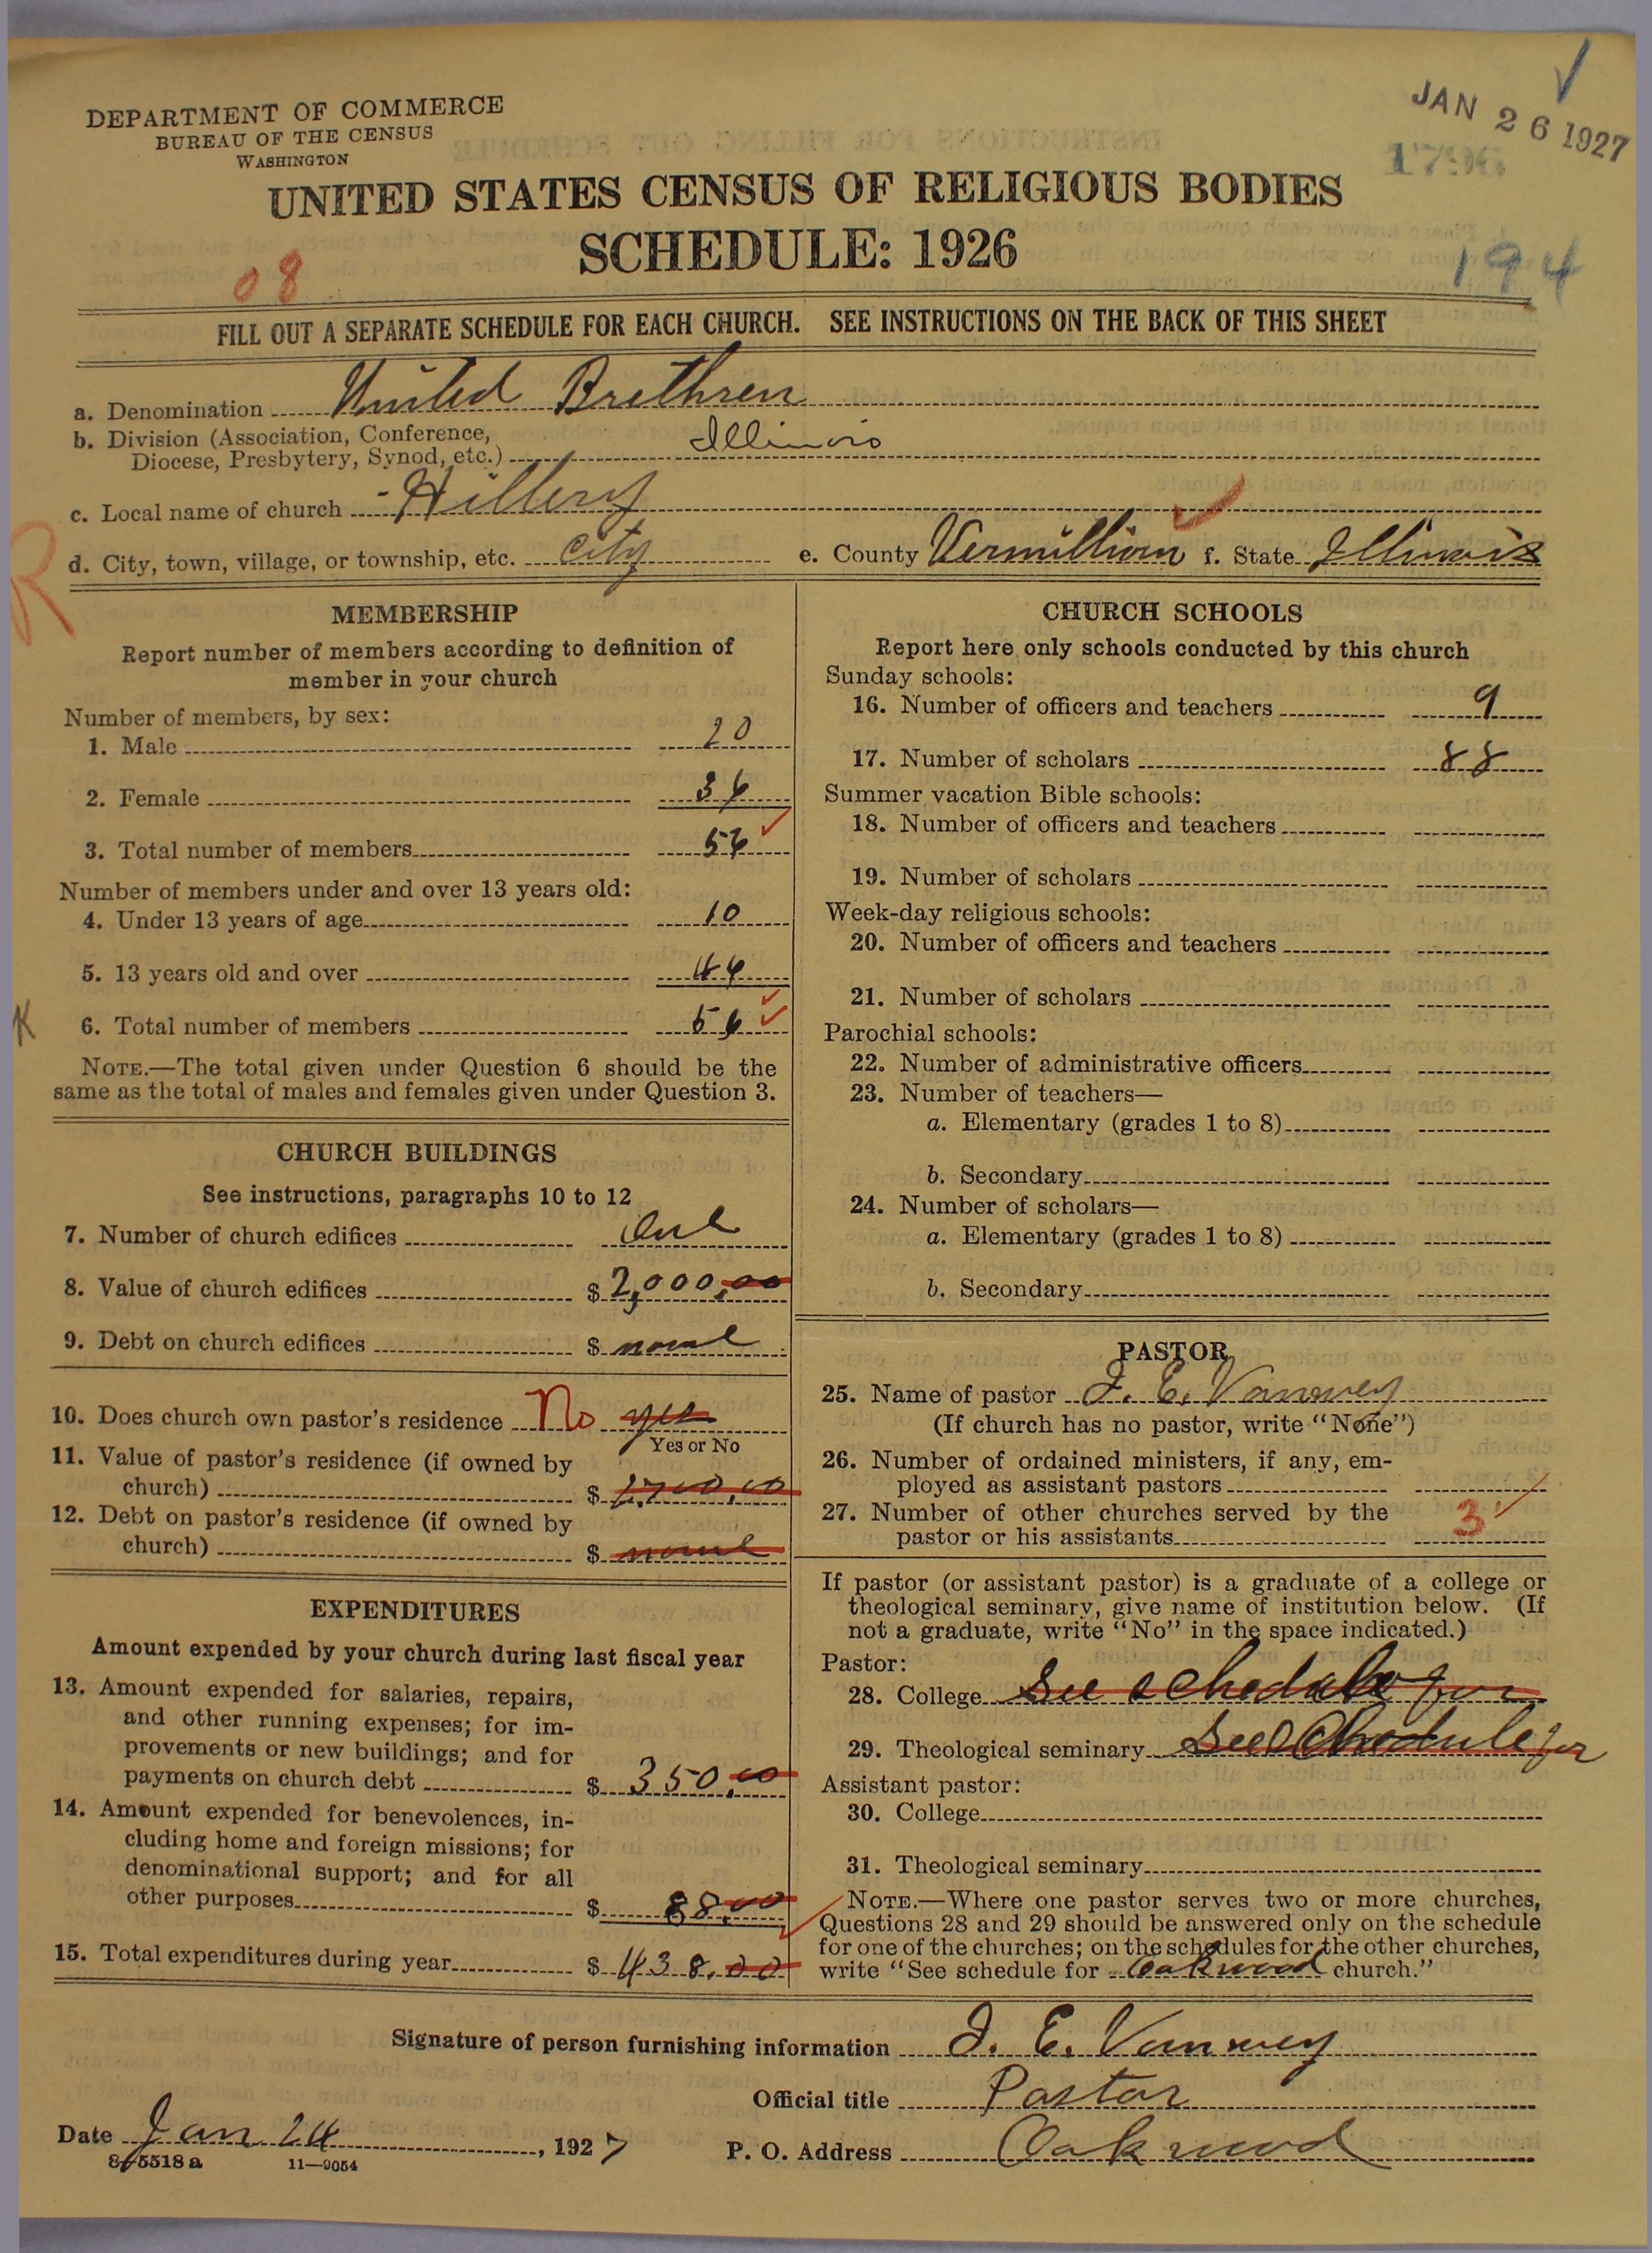 DEPARTMENT OF COMMERCE
BUREAU OF THE CENSUS
WASHINGTON
JAN 26 1927
1796
UNITED STATES CENSUS OF RELIGIOUS BODIES
SCHEDULE: 1926
08
194
FILL OUT A SEPARATE SCHEDULE FOR EACH CHURCH. SEE INSTRUCTIONS ON THE BACK OF THIS SHEET
a. Denomination United Brethren
b. Division (Association, Conference,
Diocese, Presbytery, Synod, etc.) Illinois
c. Local name of church Hillery
d. City, town, village, or township, etc. City e. County Vermillion f. State Illinois
R
MEMBERSHIP
Report number of members according to definition of
member in your church
Number of members, by sex:
1. Male 20
2. Female 36
3. Total number of members 56
Number of members under and over 13 years old:
4. Under 13 years of age 10
5. 13 years old and over 46
K
6. Total number of members 56
NOTE.—The total given under Question 6 should be the
same as the total of males and females given under Question 3.
CHURCH BUILDINGS
See instructions, paragraphs 10 to 12
7. Number of church edifices One
8. Value of church edifices $ 2,000.00
9. Debt on church edifices $ none
10. Does church own pastor's residence No yes
Yes or No
11. Value of pastor's residence (if owned by
church) $
12. Debt on pastor's residence (if owned by
church) $ none
EXPENDITURES
Amount expended by your church during last fiscal year
13. Amount expended for salaries, repairs,
and other running expenses; for im-
provements or new buildings; and for
payments on church debt $ 350.00
14. Amount expended for benevolences, in-
cluding home and foreign missions; for
denominational support; and for all
other purposes $ 88.00
15. Total expenditures during year $ 438.00
CHURCH SCHOOLS
Report here only schools conducted by this church
Sunday schools:
16. Number of officers and teachers 9
17. Number of scholars 88
Summer vacation Bible schools:
18. Number of officers and teachers
19. Number of scholars
Week-day religious schools:
20. Number of officers and teachers
21. Number of scholars
Parochial schools:
22. Number of administrative officers
23. Number of teachers—
a. Elementary (grades 1 to 8)
b. Secondary
24. Number of scholars—
a. Elementary (grades 1 to 8)
b. Secondary
PASTOR
25. Name of pastor J. E. Vanwey
(If church has no pastor, write "None")
26. Number of ordained ministers, if any, em-
ployed as assistant pastors
27. Number of other churches served by the
pastor or his assistants 3
If pastor (or assistant pastor) is a graduate of a college or
theological seminary, give name of institution below. (If
not a graduate, write "No" in the space indicated.)
Pastor:
28. College See schedule for
29. Theological seminary See Schedule for
Assistant pastor:
30. College
31. Theological seminary
NOTE.—Where one pastor serves two or more churches,
Questions 28 and 29 should be answered only on the schedule
for one of the churches; on the schedules for the other churches,
write "See schedule for Oakwood church."
Signature of person furnishing information J. E. Vanwey
Official title Pastor
Date Jan 24, 1927 P. O. Address Oakwood
8-5518a 11—9054